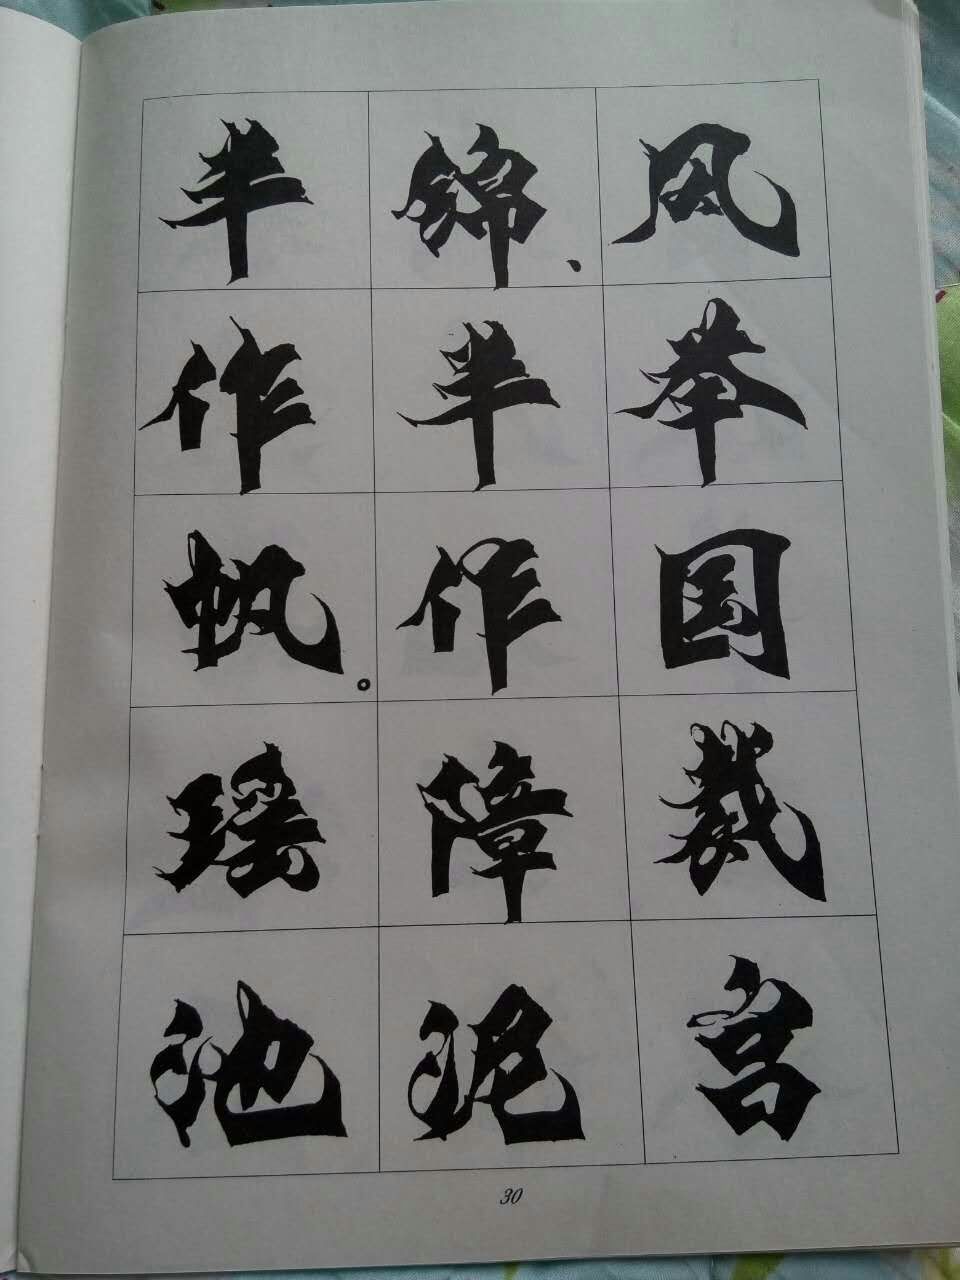 风举国裁宫
锦、半作障泥
半作帆。瑶池
30